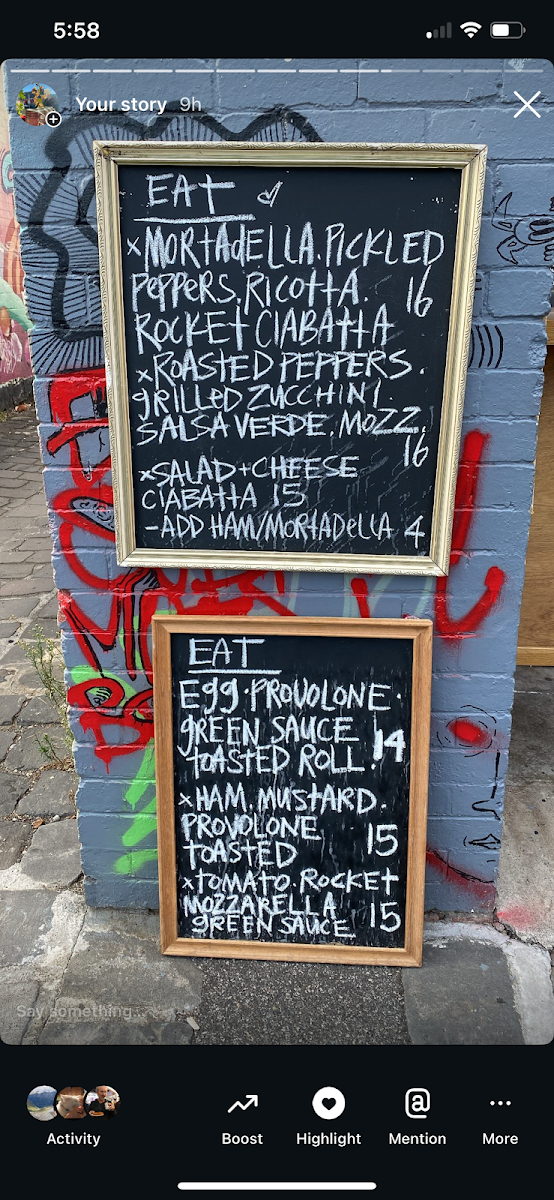 5:58
Your story 9h
EAT
xMORTADELLA.PICKLED
PEPPERS.RICOTTA. 16
ROCKET CIABATTA
xROASTED PEPPERS.
GRILLED ZUCCHINI.
SALSA VERDE. MOZZ.
16
xSALAD+CHEESE
CIABATTA 15
-ADD HAM/MORTADELLA 4
EAT
EGG.PROVOLONE.
GREEN SAUCE 14
TOASTED ROLL.
xHAM.MUSTARD.
PROVOLONE 15
TOASTED
xTOMATO.ROCKET
MOZZARELLA 15
GREEN SAUCE
Say something...
Activity
Boost
Highlight
Mention
More